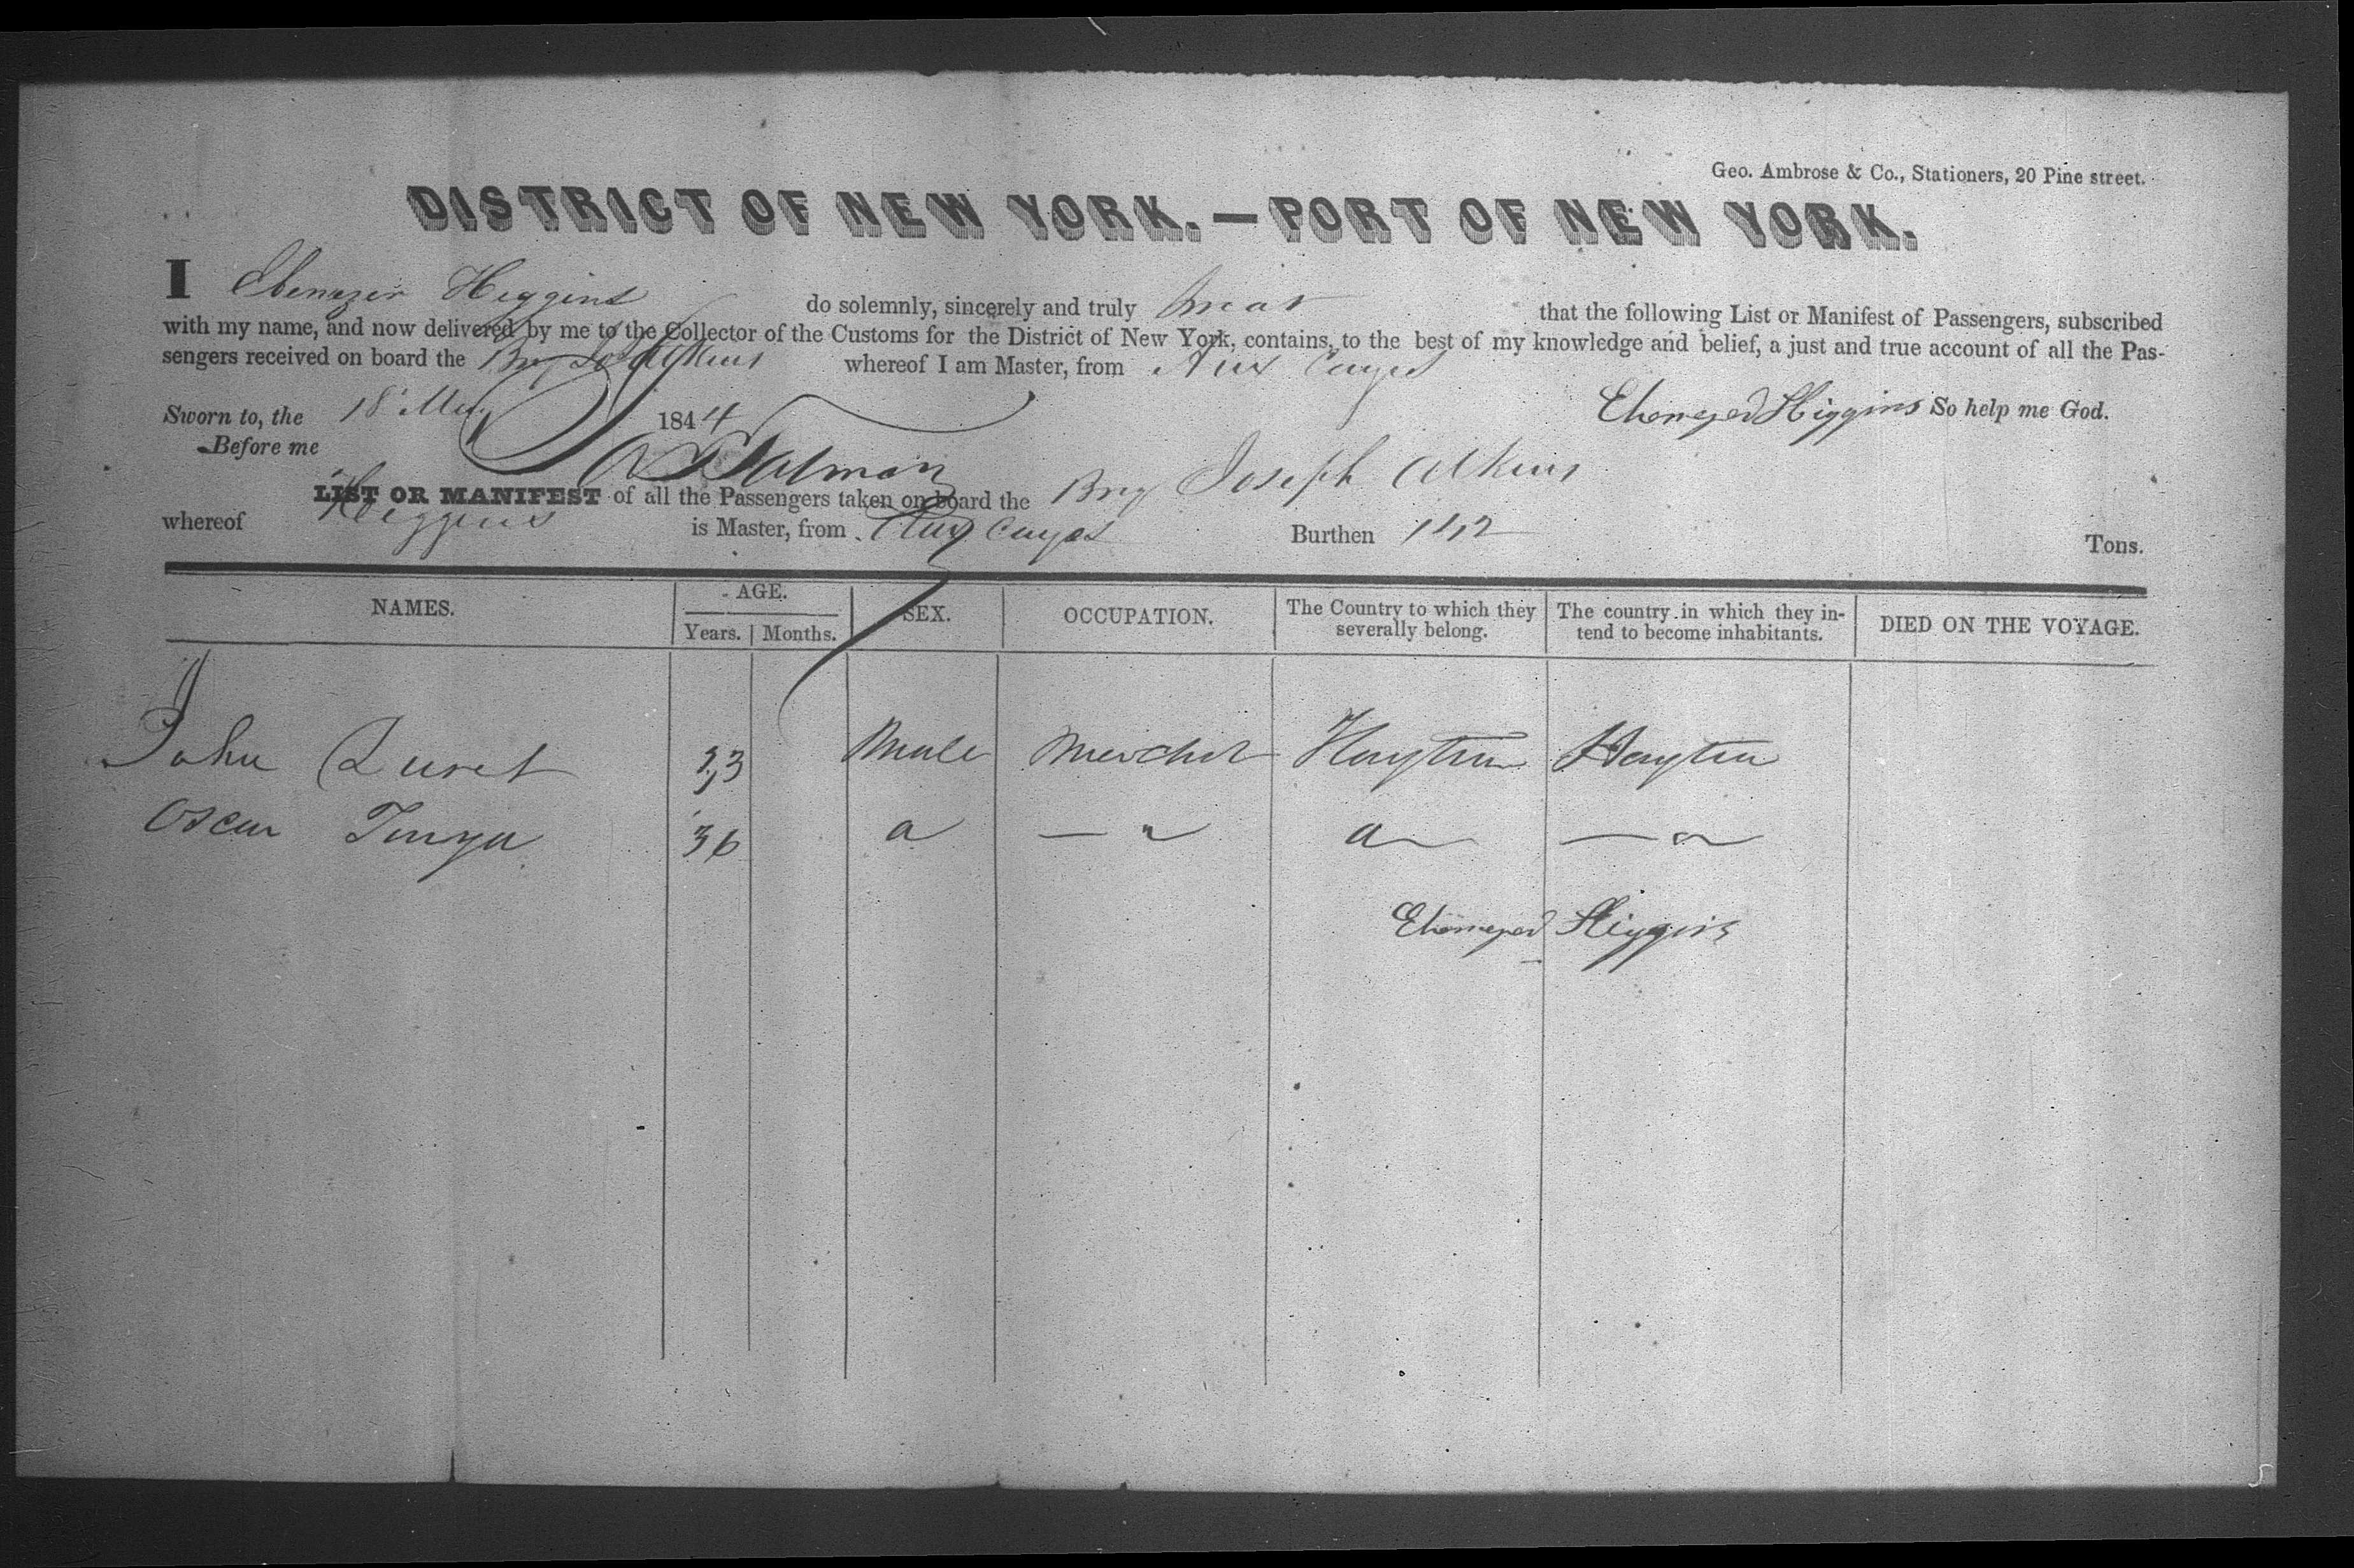 Geo. Ambrose & Co., Stationers, 20 Pine street.
DISTRICT OF NEW YORK.—PORT OF NEW YORK.
I Ebenezer Higgins do solemnly, sincerely and truly swear that the following List or Manifest of Passengers, subscribed
with my name, and now delivered by me to the Collector of the Customs for the District of New York, contains, to the best of my knowledge and belief, a just and true account of all the Pas-
sengers received on board the Brig Jos Atkins whereof I am Master, from Aux Cayes
Sworn to, the 18 1844 Ebenezer Higgins So help me God.
Before me
LIST OR MANIFEST of all the Passengers taken on board the Brig Joseph Atkins
whereof Higgins is Master, from Aux Cayes Burthen Tons.
NAMES. AGE. SEX. OCCUPATION. The Country to which they severally belong. The country in which they in-tend to become inhabitants. DIED ON THE VOYAGE.
Years. Months.
John 23 Male Merchat Haytien Haytien
Oscar 36 " — " " — "
Ebenezer Higgins